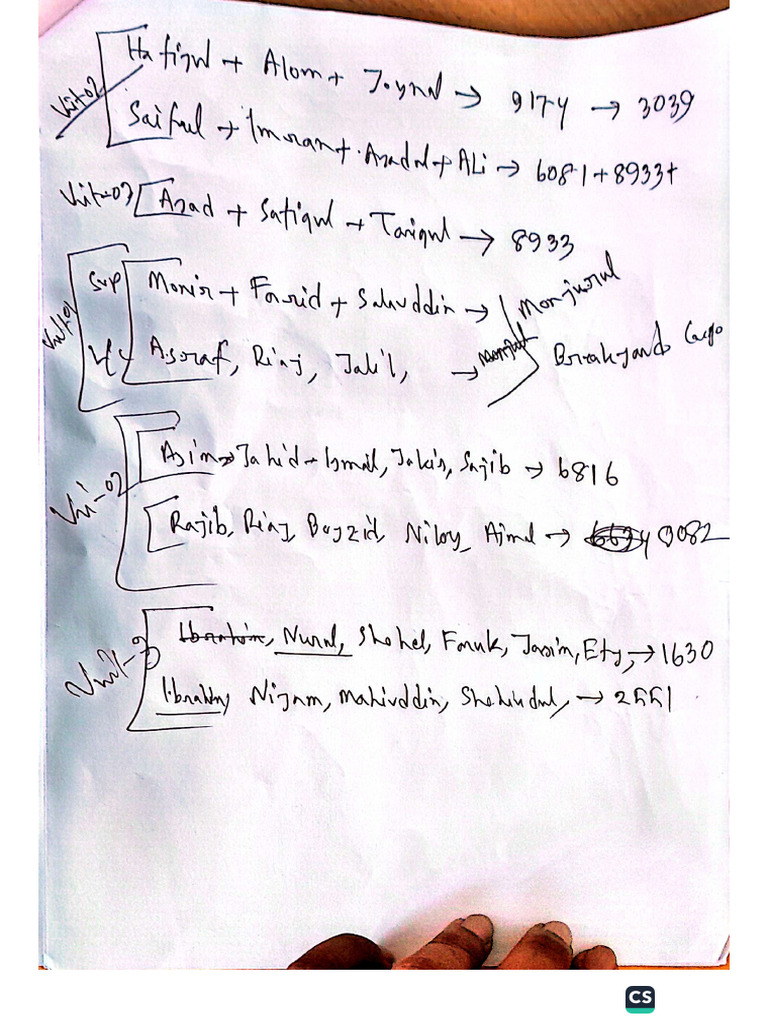 Unit-02
Hafizul + Alom + Joynal → 9174 → 3039
Saiful + Imran + Azadul + ALi → 6081 + 8933+
Unit-03 Azad + Safiqul + Tariqul → 8933
Sup Monir + Farid + Salauddin → Monjurul
Asraf, Riaj, Jalil, → Breakyard Cargo
Asim → Jahid - Ismail, Jakir, Sajib → 6816
Rajib, Riaj, Bayzid, Niloy, Ajmal → 0082
Ibrahim, Nurul, Shohel, Faruk, Jasim, Ety, → 1630
Ibrahim, Nijam, Mahiuddin, → 2551
CS